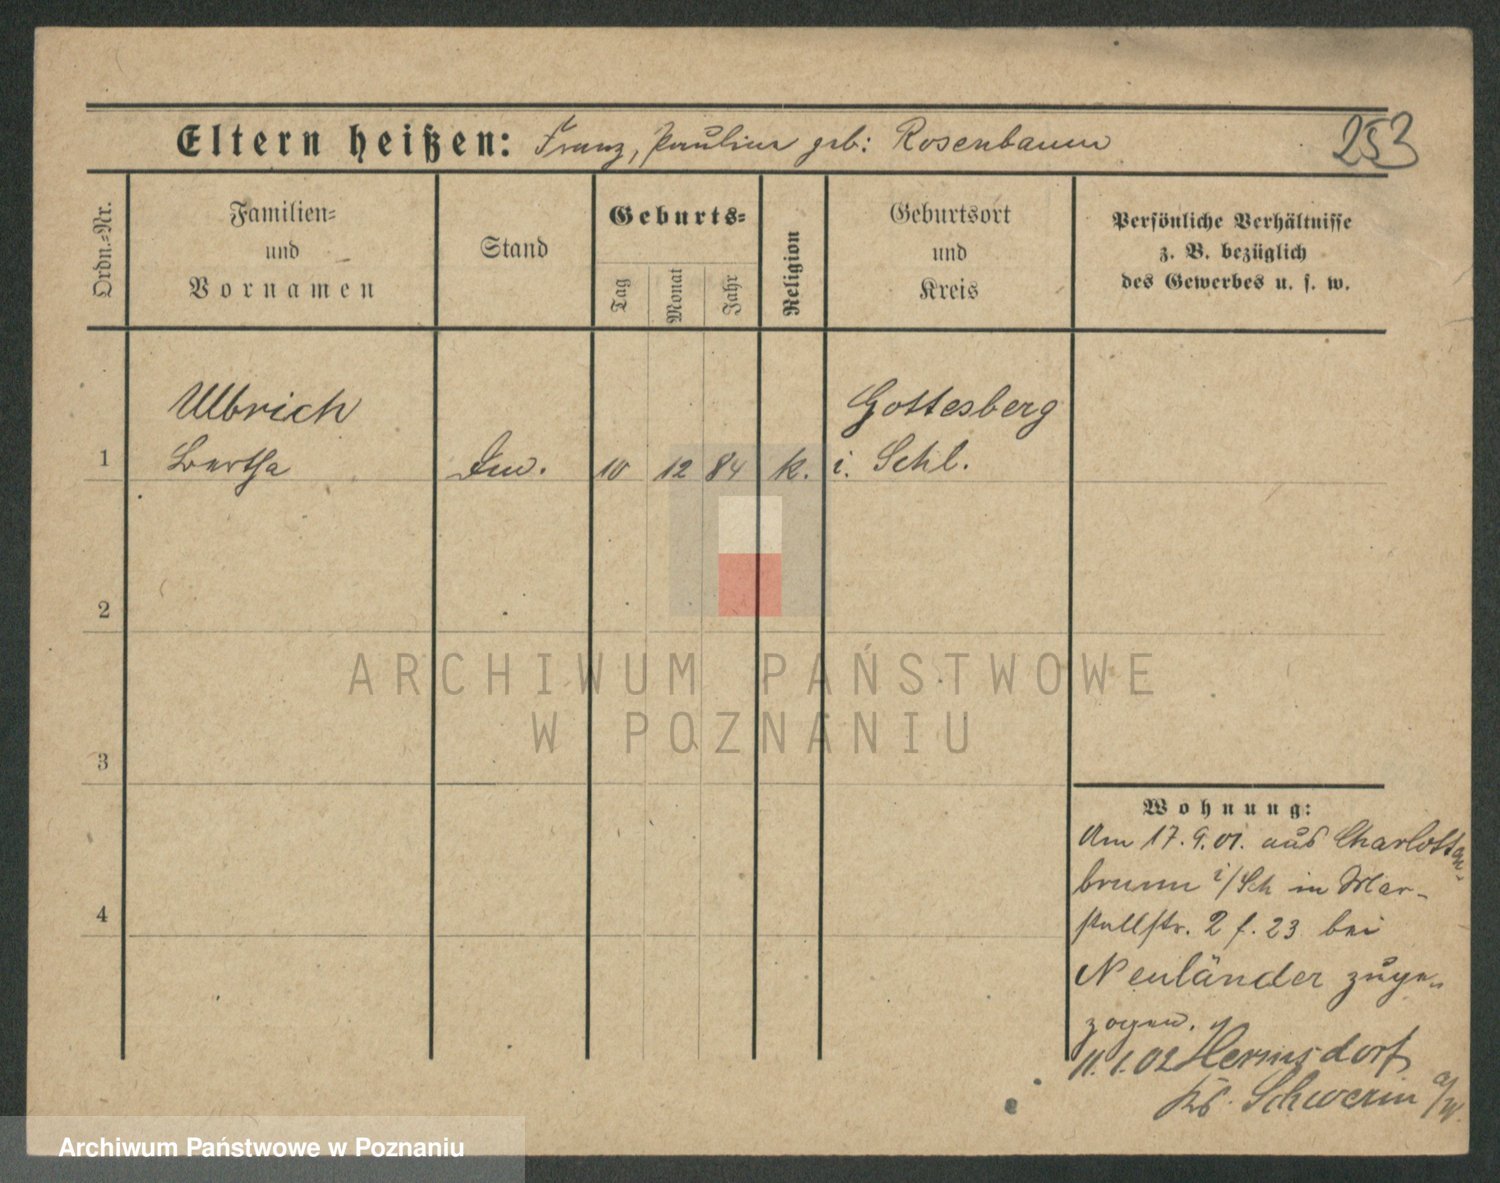 Eltern heißen: Franz, Pauline geb: Rosenbaum
253
Ordn.=Nr.
Familien=
und
Vornamen
Stand
Geburts=
Tag
Monat
Jahr
Religion
Geburtsort
und
Kreis
Persönliche Verhältnisse
z. B. bezüglich
des Gewerbes u. s. w.
Ulbrich Gottesberg
1 Bertha 10 12 84 k. i. Schl.
2
3
4
ARCHIWUM PAŃSTWOWE
W POZNANIU
Wohnung:
Am 17.9.01. aus Charlotten-
brunn i/Sch in Mar-
stallstr. 2 f. 23 bei
Neuländer zuge-
zogen.
11.1.02 Hermsdorf
Kr. Schwerin a/W.
Archiwum Państwowe w Poznaniu